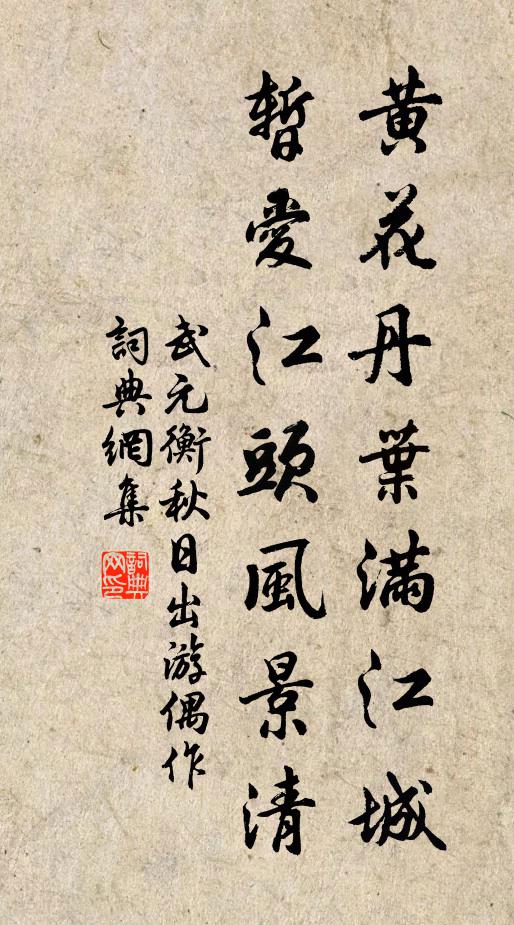 黃花丹葉滿江城
暫愛江頭風景清
武元衡秋日出游偶作
詞典網集
詞典
网印